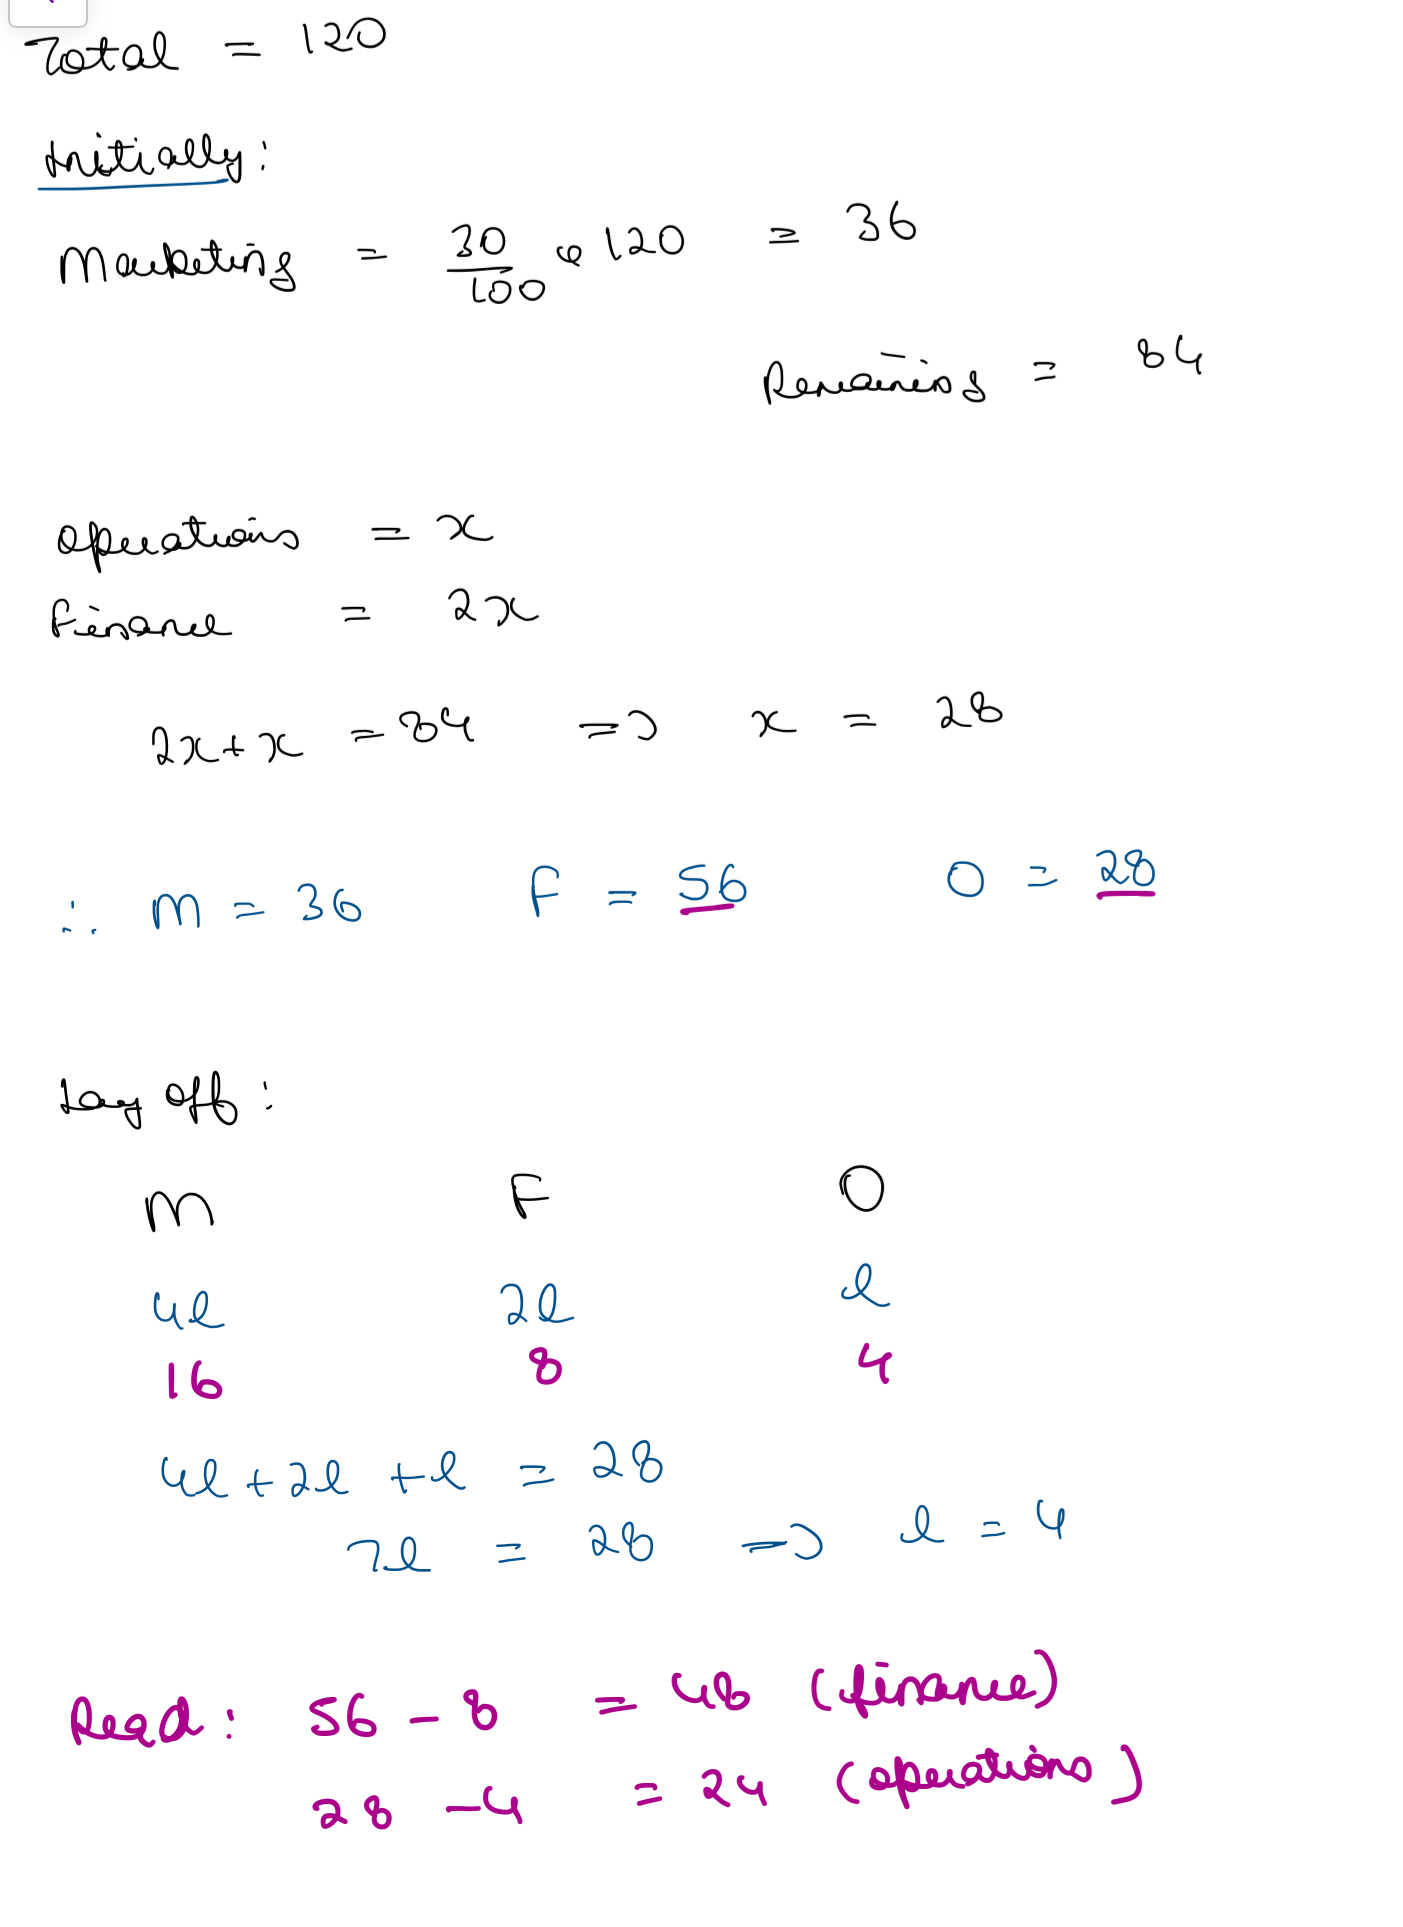 Total = 120
Initially:
Marketing = 30/100 * 120 = 36
Remaining = 84
Operations = x
Finance = 2x
2x + x = 84 => x = 28
∴ M = 36 F = 56 O = 28
Lay off:
M F O
4l 2l l
16 8 4
4l + 2l + l = 28
7l = 28 => l = 4
Reqd: 56 - 8 = 48 (finance)
28 - 4 = 24 (operations)